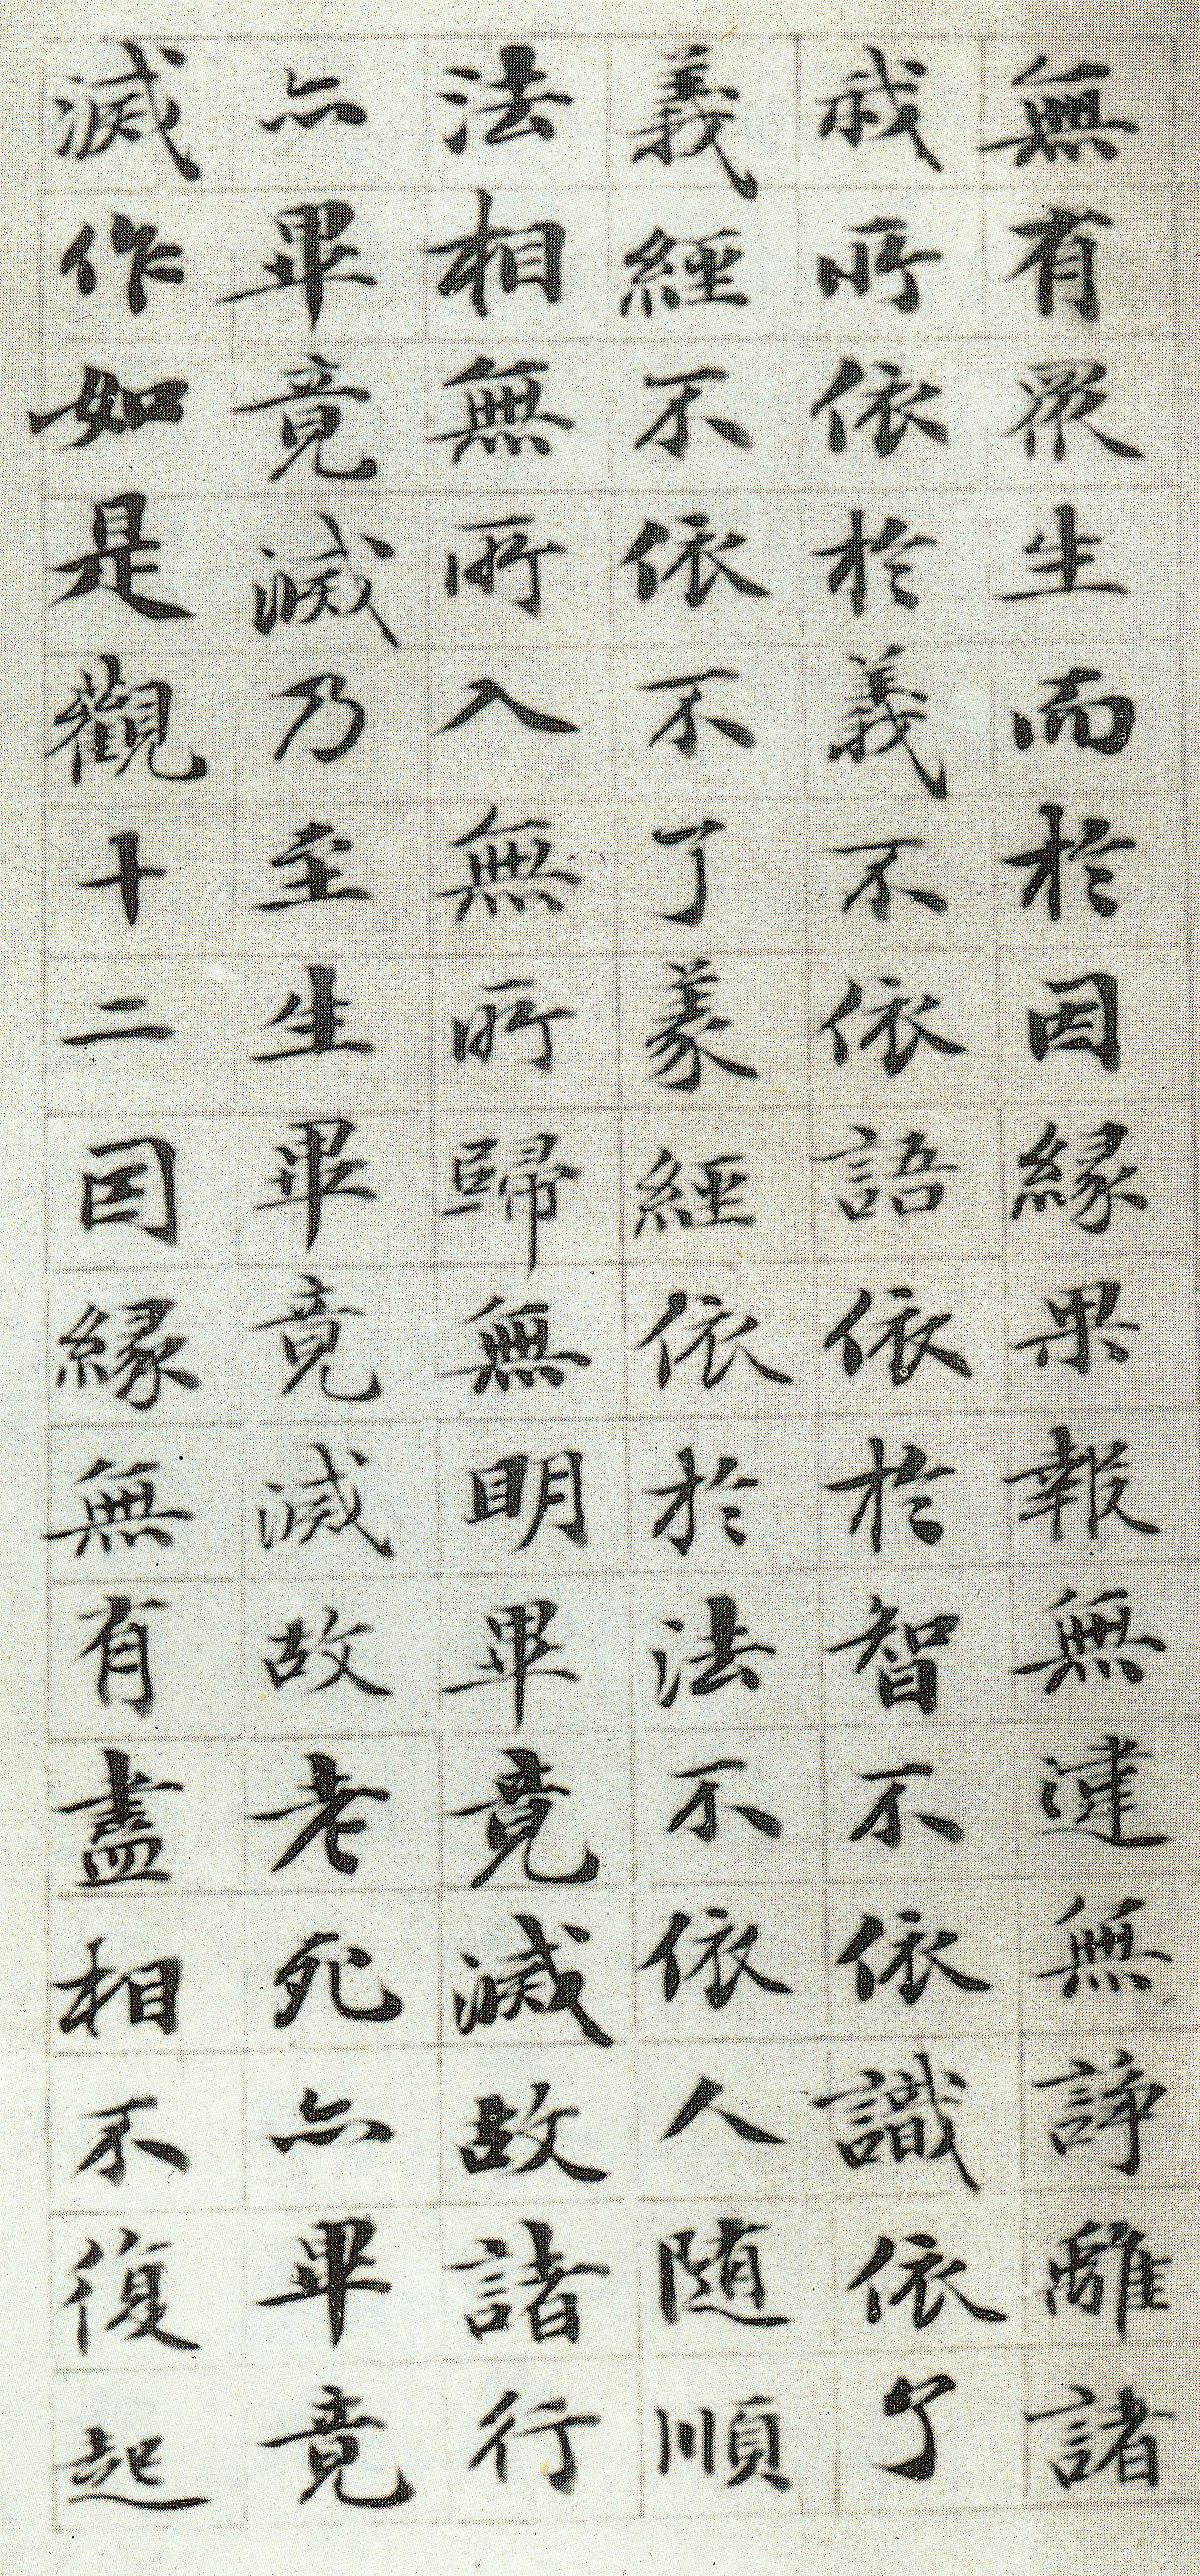 無有我人衆生而於因縁果報無違無諍離諸
我所依於義不依語依於智不依識依了
義經不依不了義經依於法不依人随順
法相無所入無所歸無明畢竟滅故諸行
亦畢竟滅乃至生畢竟滅故老死亦畢竟
滅作如是觀十二因縁無有盡相不復起